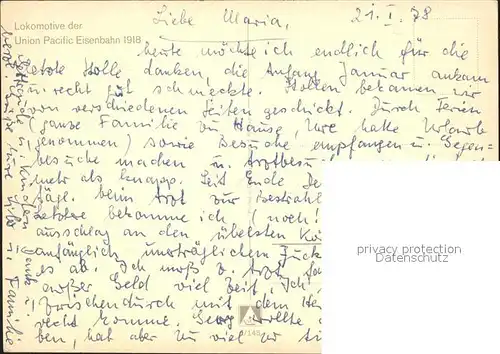 Lokomotive der
Union Pacific Eisenbahn 1918
21. I. 78
Liebe Maria,
heute möchte ich endlich für die
letzte Stolle danken, die Anfang Januar ankam
u. recht gut schmeckte. Stollen bekamen wir
von verschiedenen Seiten geschickt. Durch Ferien
(ganze Familie zu Hause, Uwe hatte Urlaub
genommen) sowie Besuche empfangen u. Gegen-
besuche machen u. Arztbesu
mehr als knapp. Seit Ende De
tägl. beim Arzt zur Bestrahl
letztere bekomme ich (noch!
ausschlag an den übelsten Kö
anfänglich unerträglichem Juck
es ab. Ich muß z. Arzt
außer Geld viel Zeit. Ich
zwischendurch mit dem
recht komme. Georg wollte
ben, hat aber zu viel zu
privacy protection
Datenschutz
Familie